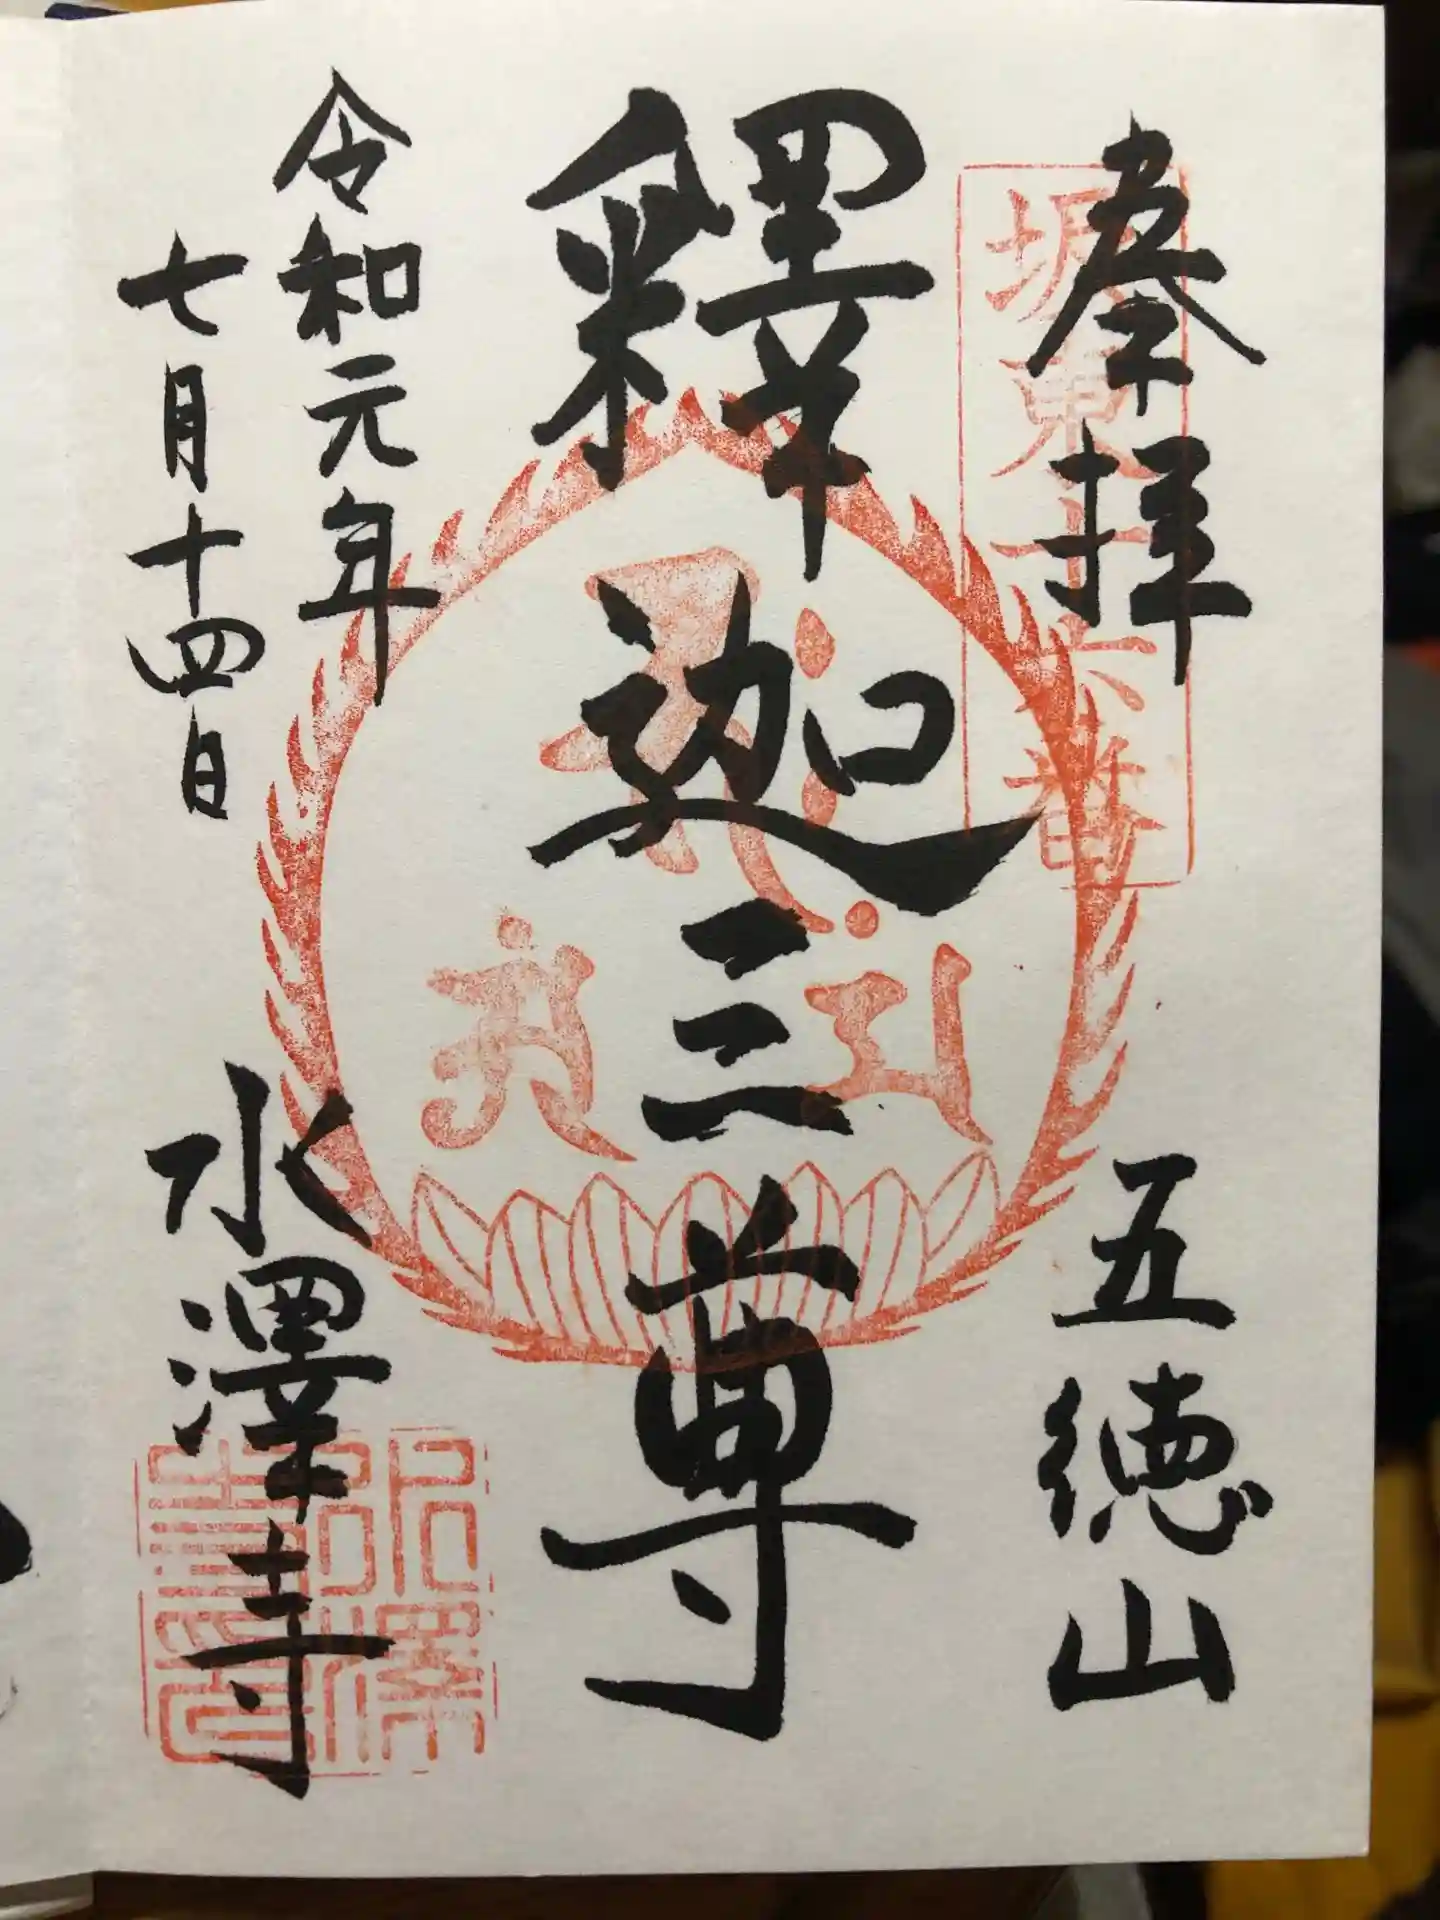 奉拝
坂東十六番
五徳山
釋迦三尊
令和元年
七月十四日
水澤寺